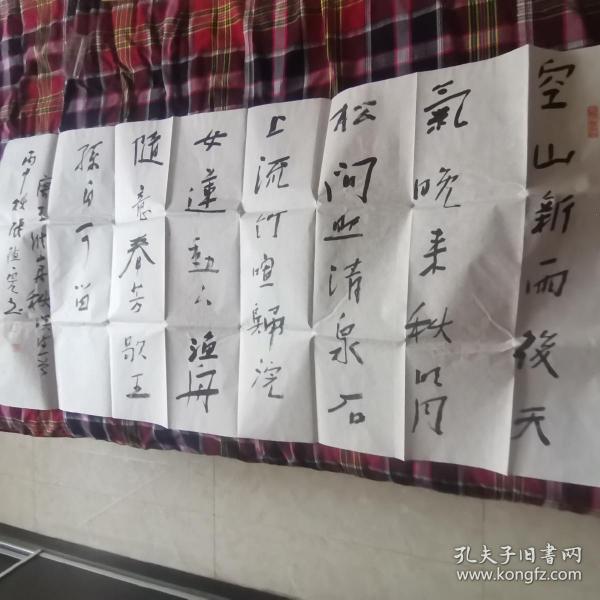 空山新雨後天
氣晚来秋明月
松间照清泉石
上流竹喧歸浣
女蓮動下渔舟
隨意春芳歇王
孫自可留
唐王維山居秋暝
丙申秋
孔夫子旧书网
www.kongfz.com